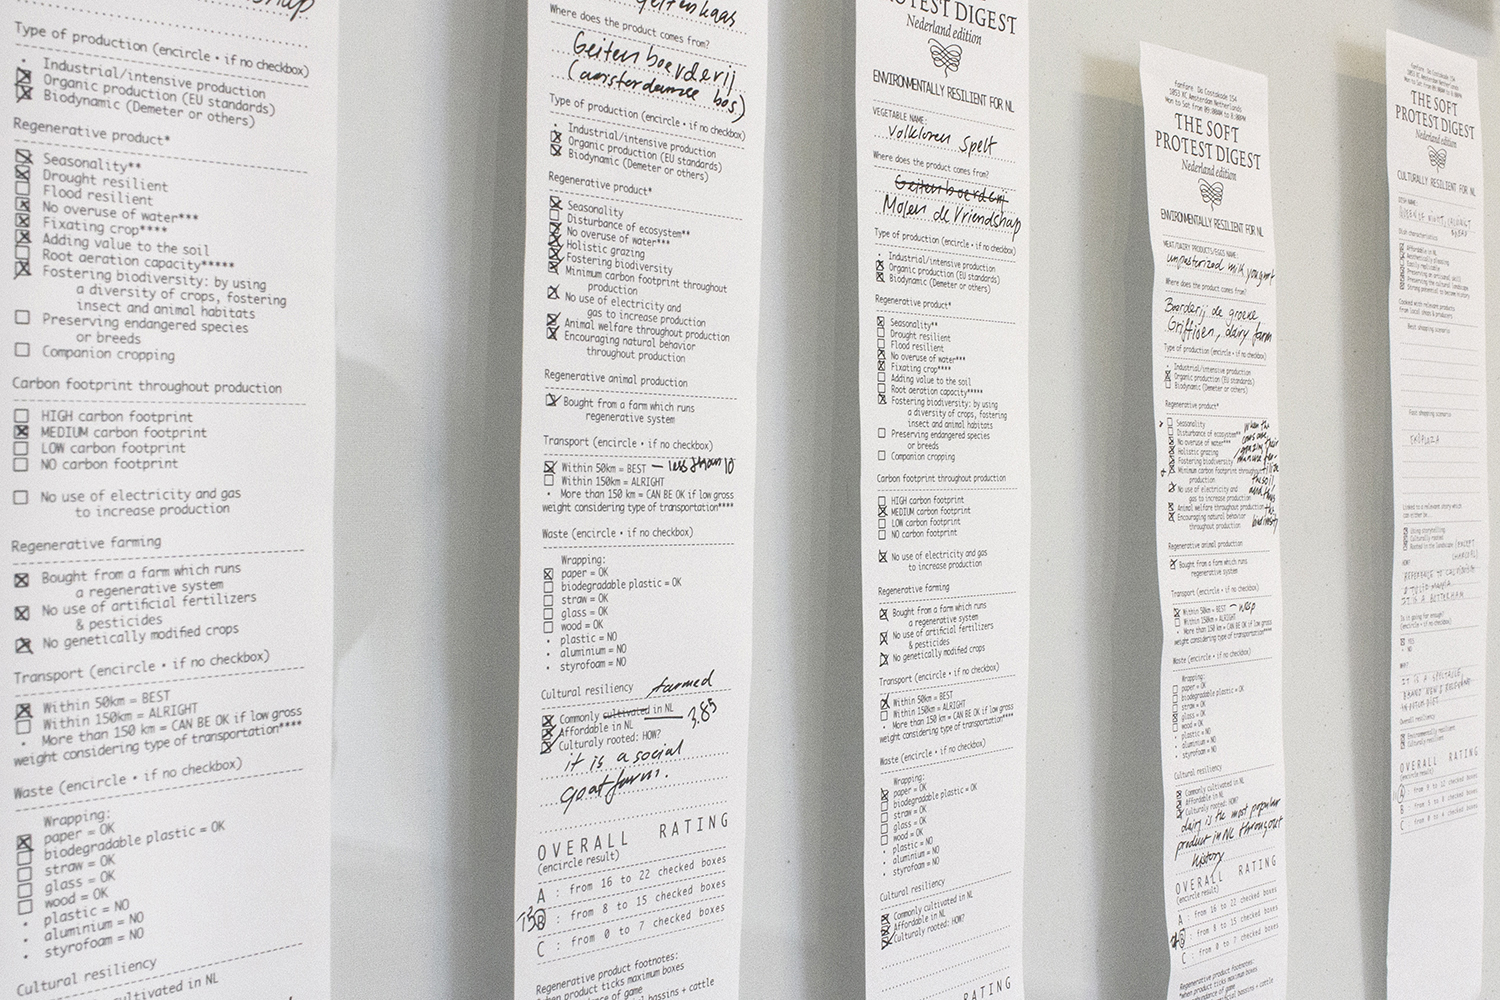 Type of production (encircle • if no checkbox)
• Industrial/intensive production
Organic production (EU standards)
Biodynamic (Demeter or others)
Regenerative product*
Seasonality**
Drought resilient
Flood resilient
No overuse of water***
Fixating crop****
Adding value to the soil
Root aeration capacity*****
Fostering biodiversity: by using
a diversity of crops, fostering
insect and animal habitats
Preserving endangered species
or breeds
Companion cropping
Carbon footprint throughout production
HIGH carbon footprint
MEDIUM carbon footprint
LOW carbon footprint
NO carbon footprint
No use of electricity and gas
to increase production
Regenerative farming
Bought from a farm which runs
a regenerative system
No use of artificial fertilizers
& pesticides
No genetically modified crops
Transport (encircle • if no checkbox)
Within 50km = BEST
Within 150km = ALRIGHT
• More than 150 km = CAN BE OK if low gross
weight considering type of transportation****
Waste (encircle • if no checkbox)
Wrapping:
paper = OK
biodegradable plastic = OK
straw = OK
glass = OK
wood = OK
• plastic = NO
• aluminium = NO
• styrofoam = NO
Cultural resiliency
cultivated in NL
geitenkaas
Where does the product comes from?
Geitenboerderij
(amsterdamse bos)
Type of production (encircle • if no checkbox)
• Industrial/intensive production
Organic production (EU standards)
Biodynamic (Demeter or others)
Regenerative product*
Seasonality
Disturbance of ecosystem**
No overuse of water***
Holistic grazing
Fostering biodiversity
Minimum carbon footprint throughout
production
No use of electricity and
gas to increase production
Animal welfare throughout production
Encouraging natural behavior
throughout production
Regenerative animal production
Bought from a farm which runs
regenerative system
Transport (encircle • if no checkbox)
Within 50km = BEST – less than 10
Within 150km = ALRIGHT
• More than 150 km = CAN BE OK if low gross
weight considering type of transportation****
Waste (encircle • if no checkbox)
Wrapping:
paper = OK
biodegradable plastic = OK
straw = OK
glass = OK
wood = OK
• plastic = NO
• aluminium = NO
• styrofoam = NO
Cultural resiliency farmed
Commonly cultivated in NL
Affordable in NL 3,85
Culturaly rooted: HOW?
it is a social
goat farm.
OVERALL RATING
(encircle result)
A : from 16 to 22 checked boxes
B : from 8 to 15 checked boxes
C : from 0 to 7 checked boxes
Regenerative product footnotes:
*when product ticks maximum boxes
PROTEST DIGEST
Nederland edition
ENVIRONMENTALLY RESILIENT FOR NL
VEGETABLE NAME:
Volkoren Spelt
Where does the product comes from?
Geitenboerderij
Molen de Vriendshap
Type of production (encircle • if no checkbox)
• Industrial/intensive production
Organic production (EU standards)
Biodynamic (Demeter or others)
Regenerative product*
Seasonality**
Drought resilient
Flood resilient
No overuse of water***
Fixating crop****
Adding value to the soil
Root aeration capacity*****
Fostering biodiversity: by using
a diversity of crops, fostering
insect and animal habitats
Preserving endangered species
or breeds
Companion cropping
Carbon footprint throughout production
HIGH carbon footprint
MEDIUM carbon footprint
LOW carbon footprint
NO carbon footprint
No use of electricity and gas
to increase production
Regenerative farming
Bought from a farm which runs
a regenerative system
No use of artificial fertilizers
& pesticides
No genetically modified crops
Transport (encircle • if no checkbox)
Within 50km = BEST
Within 150km = ALRIGHT
• More than 150 km = CAN BE OK if low gross
weight considering type of transportation****
Waste (encircle • if no checkbox)
Wrapping:
paper = OK
biodegradable plastic = OK
straw = OK
glass = OK
wood = OK
• plastic = NO
• aluminium = NO
• styrofoam = NO
Cultural resiliency
Commonly cultivated in NL
Affordable in NL
Culturaly rooted: HOW?
OVERALL RATING
fanfare Da Costakade 154
1053 XC Amsterdam Netherlands
THE SOFT
PROTEST DIGEST
Nederland edition
ENVIRONMENTALLY RESILIENT FOR NL
MEAT/DAIRY PRODUCTS/EGGS NAME:
unpasterized milk yougourt
Where does the product comes from?
Boerderij de groene
Griffioen, dairy farm
Type of production (encircle • if no checkbox)
• Industrial/intensive production
Organic production (EU standards)
Biodynamic (Demeter or others)
Regenerative product*
Seasonality
Disturbance of ecosystem**
No overuse of water***
Holistic grazing
Fostering biodiversity
Minimum carbon footprint throughout
production
No use of electricity and
gas to increase production
Animal welfare throughout production
Encouraging natural behavior
throughout production
Regenerative animal production
Bought from a farm which runs
regenerative system
Transport (encircle • if no checkbox)
Within 50km = BEST
Within 150km = ALRIGHT
• More than 150 km = CAN BE OK if low gross
weight considering type of transportation****
Waste (encircle • if no checkbox)
Wrapping:
paper = OK
biodegradable plastic = OK
straw = OK
glass = OK
wood = OK
• plastic = NO
• aluminium = NO
• styrofoam = NO
Cultural resiliency
Commonly cultivated in NL
Affordable in NL
Culturaly rooted: HOW?
dairy is the most popular
product in NL througout
history
OVERALL RATING
(encircle result)
A : from 16 to 22 checked boxes
B : from 8 to 15 checked boxes
C : from 0 to 7 checked boxes
Regenerative product footnotes:
THE SOFT
PROTEST DIGEST
Nederland edition
CULTURALLY RESILIENT FOR NL
DISH NAME:
Dish characteristics
Affordable in NL
Aesthetically pleasing
Easily replicable
Preserving an artisanal skill
Preserving the cultural landscape
Strong potential to become history
Cooked with relevant products
from local shops & producers
Best shopping scenario
Fast shopping scenario
EKOPLAZA
Overall resiliency
Environmentally resilient
Culturally resilient
OVERALL RATING
(encircle result)